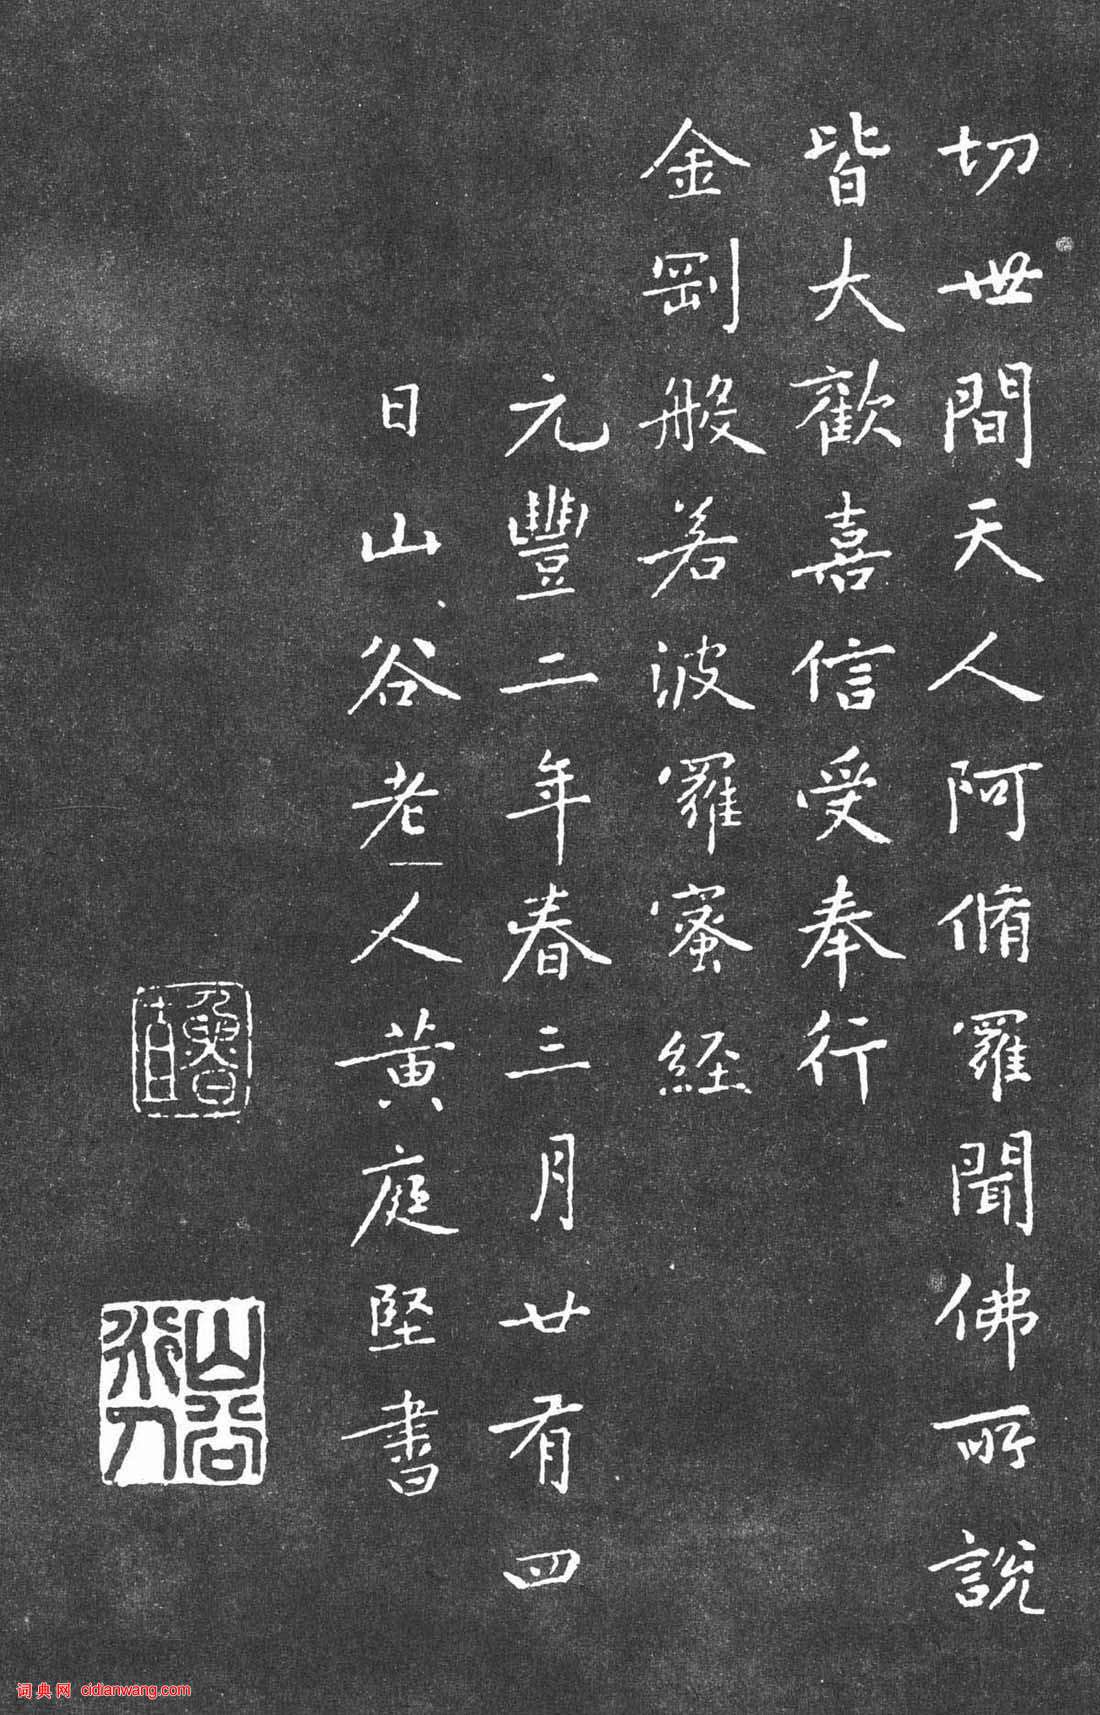 切世間天人阿脩羅聞佛所說
皆大歡喜信受奉行
金剛般若波羅蜜經
元豐二年春三月廿有四
日山谷老人黃庭堅書
魯直
山谷
词典网 cidianwang.com